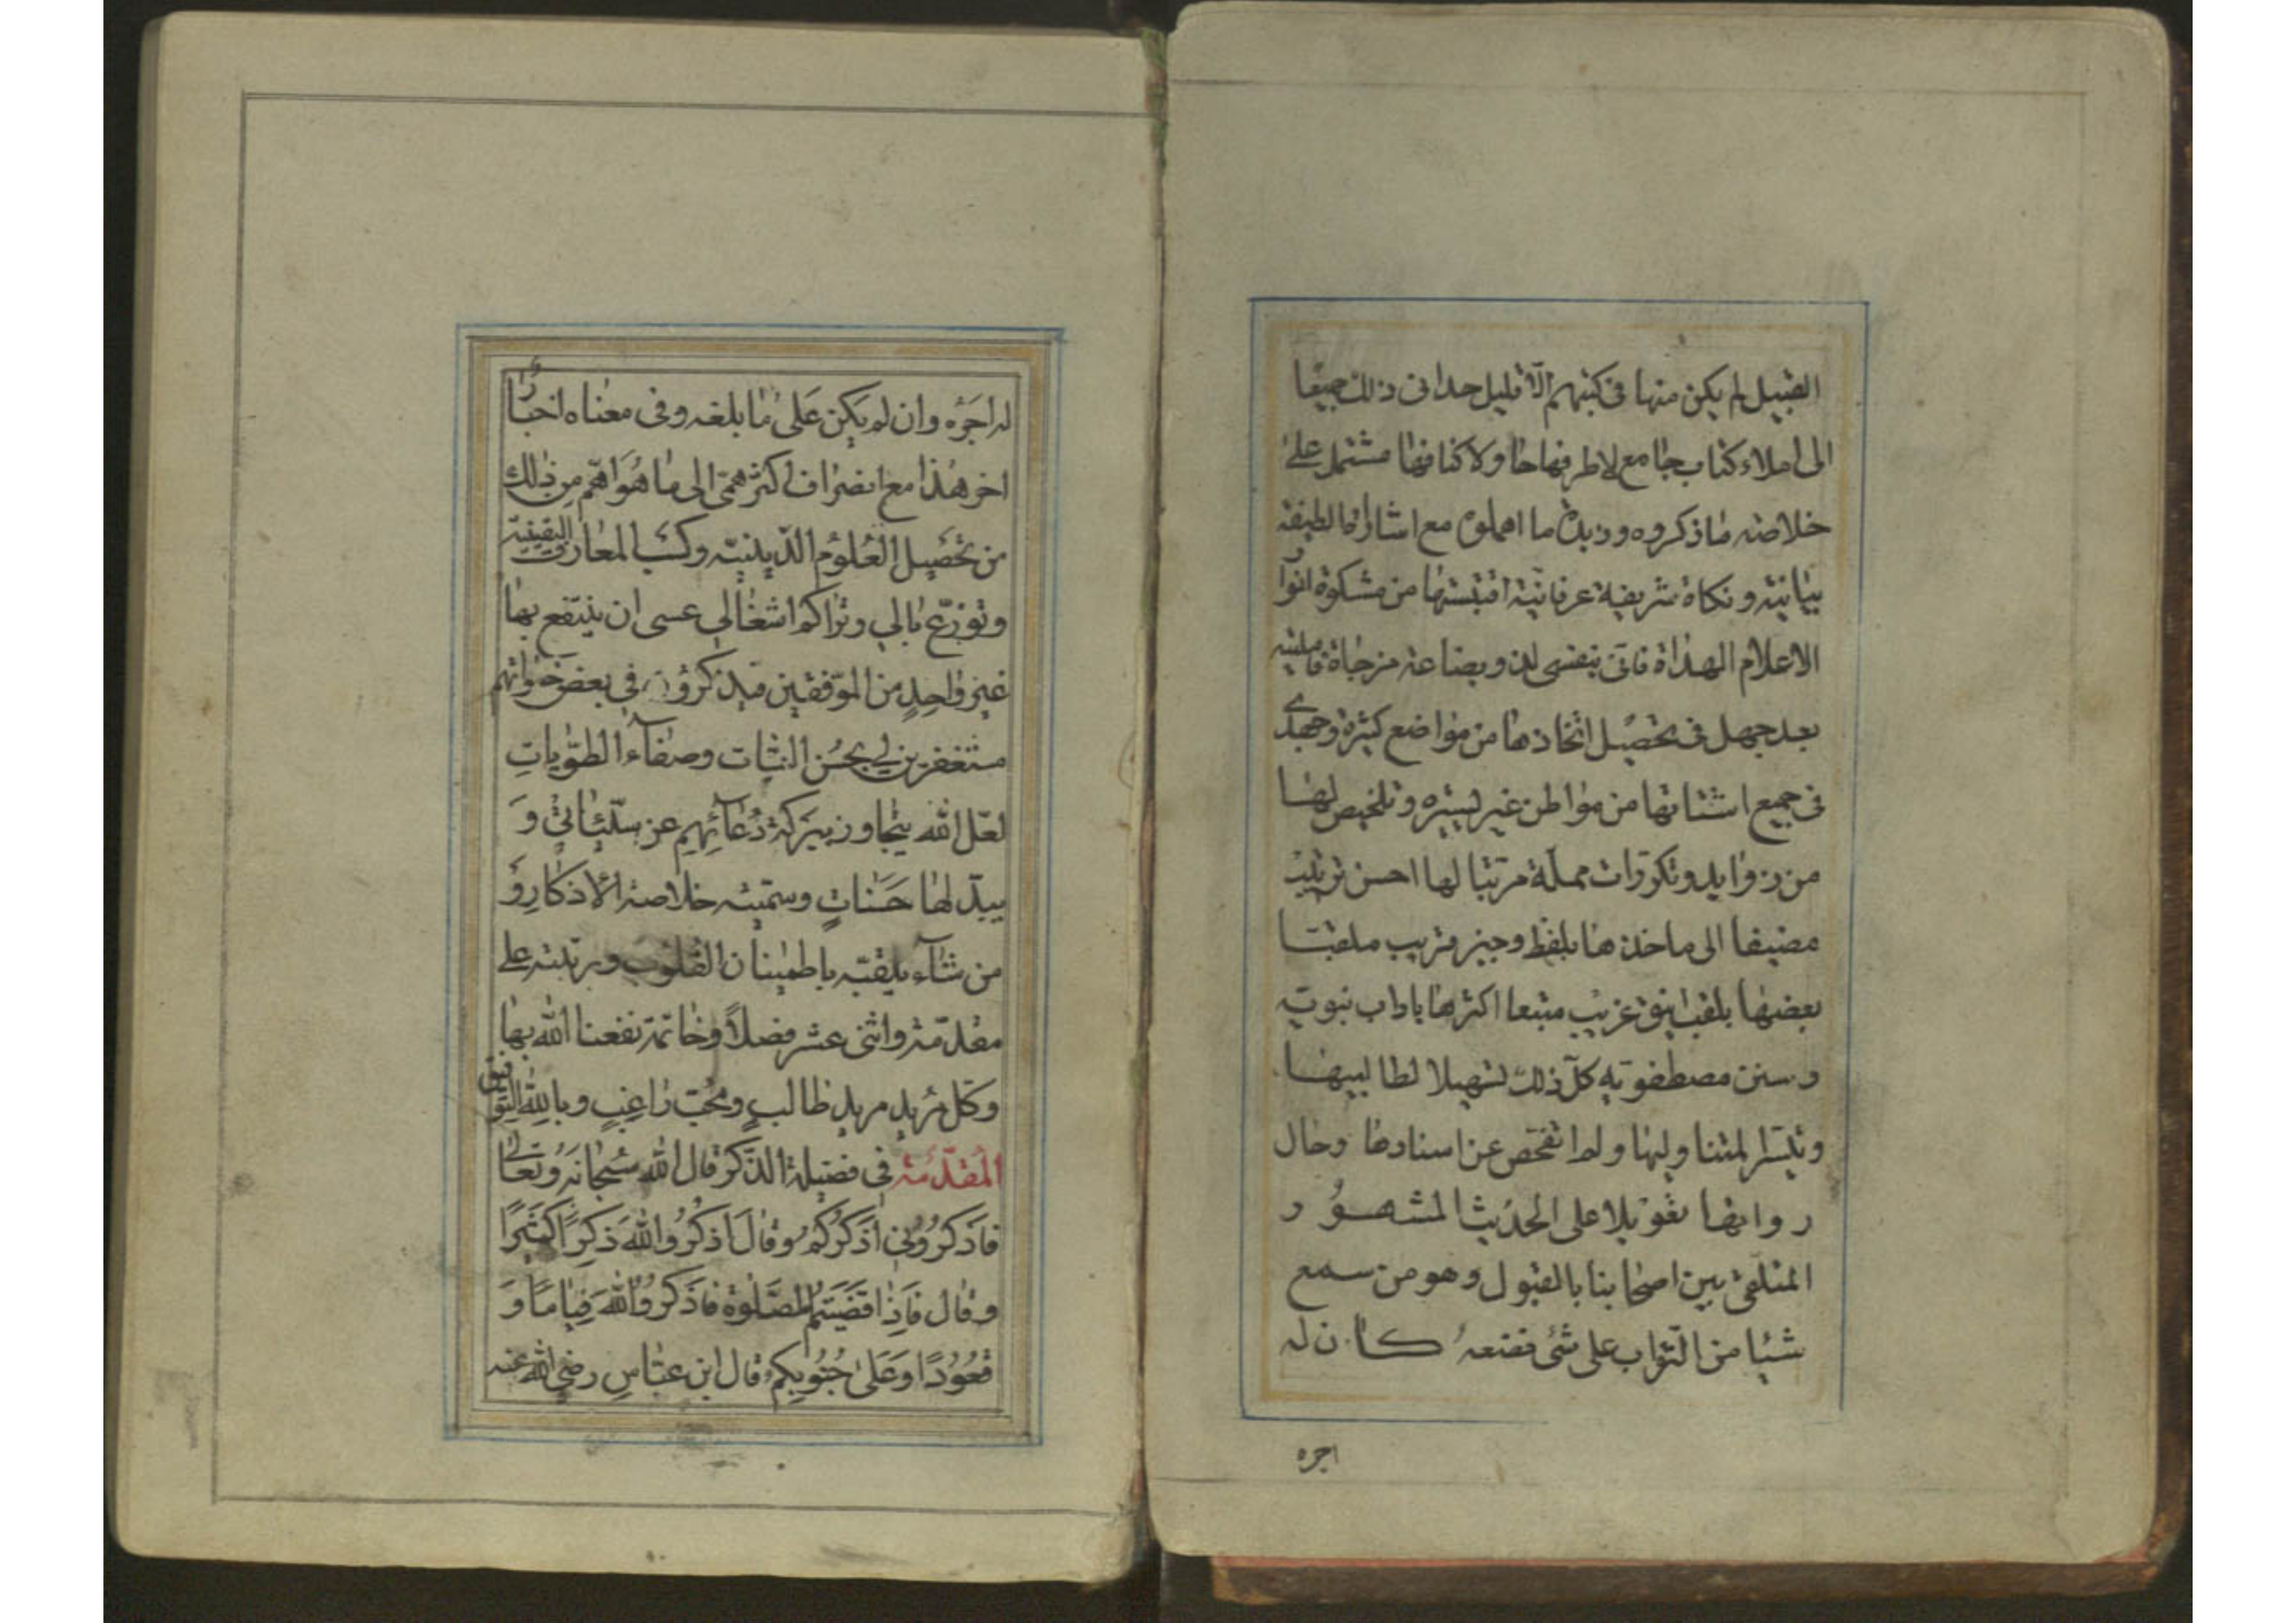 القبيل لم يكن منها فى كتبهم الّا قليل حدانى ذلك جميعا
الى املاء كتاب جامع لاطرافها حاو لاكنافها مشتمل على
خلاصه ما ذكروه وزبدة ما اهملوه مع اشارات لطيفة
بيانيته ونكاة شريفية عرفانيّة اقتبستها من مشكوة انوار
الاعلام الهداة فاتى بنفسى لدن وبضاعة مزجاة فامليته
بعد جهل فى تحصيل اتخاذها من مواضع كثيرة وجهدى
فى جميع اشتاتها من مواطن غير يسيره وتلخيص لها
من زوايد وتكرّرات مملّة مرتبا لها احسن ترتيب
مضيفا الى ماخذها بلفظ وجيز قريب ملقبتا
بعضها بلقب انيق غريب متبعا اكثرها باداب نبويّه
وسنن مصطفويّه كلّ ذلك تسهيلا لطالبيها
وتيسّرا لمتناوليها ولم اتفحّص عن اسنادها وحال
رواتها تعويلا على الحديث المشهور
المتلقى بين اصحابنا بالقبول وهو من سمع
شيئا من الثواب على شئ فصنعه كان له
اجره
له اجره وان لم يكن على ما بلغه وفى معناه اخبار
اخر هذا مع انصراف اكثر همّى الى ما هو اهمّ من ذلك
من تحصيل العلوم الدّينيّه وكسب المعارف اليقينيّة
وتوزّع بالى وتراكم اشغالى عسى ان ينتفع بها
غير واحد من الموّفقين فيذكرون فى بعض خلواتهم
مستغفرين لى بحسن النيّات وصفاء الطوّيات
لعلّ الله يتجاوز ببركة دعائهم عن سيّئاتى و
يبدّلها حسنات وسمّيته خلاصة الاذكار و
من شاء يلقبّه باطمينان القلوب ورتبته على
مقدّمة واثنى عشر فصلاً وخاتمة نفعنا الله بها
وكلّ مريد مريد طالب ومحبّ راغب وبالله التوفيق
المقدّمة فى فضيلة الذّكر قال الله سبحانه وتعالى
فاذكرونى اذكركم وقال اذكروا الله ذكرا كثيرا
وقال فاذا قضيتم الصّلوة فاذكروا الله قياما و
قعودا وعلى جنوبكم قال ابن عبّاس رضى الله عنه